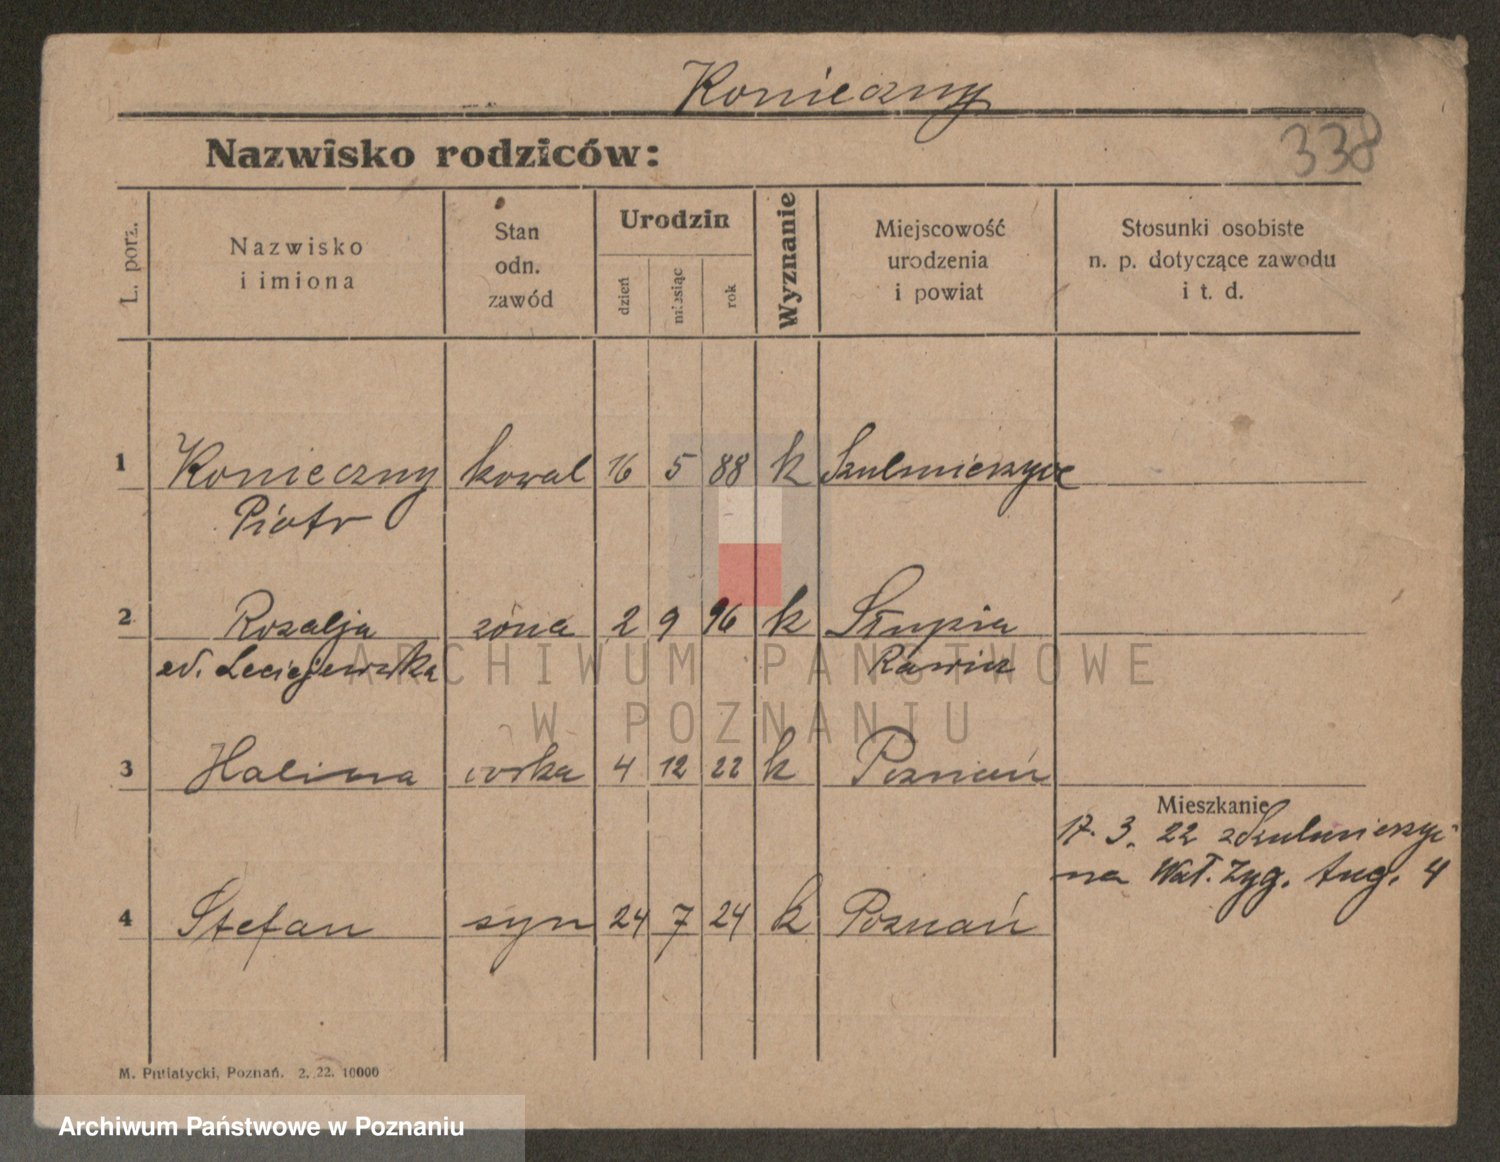 Konieczny
338
Nazwisko rodziców:
L. porz.
Nazwisko
i imiona
Stan
odn.
zawód
Urodzin
dzień
miesiąc
rok
Wyznanie
Miejscowość
urodzenia
i powiat
Stosunki osobiste
n. p. dotyczące zawodu
i t. d.
1 Konieczny kowal 16 5 88 k Szulmierzyce
Piotr
2 Rozalja żona 2 9 96 k Słupia
zd. Leciejewska Rawicz
3 Halina córka 4 12 22 k Poznań
Mieszkanie
17. 3. 22 z Szulmierzyc
na Wał. Zyg. Aug. 4
4 Stefan syn 24 7 24 k Poznań
M. Putiatycki, Poznań. 2. 22. 10000
ARCHIWUM PAŃSTWOWE
W POZNANIU
Archiwum Państwowe w Poznaniu